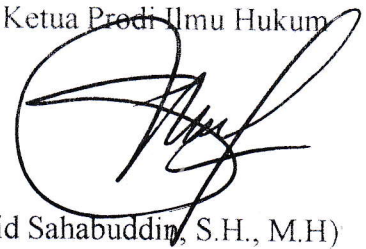 Ketua Prodi Ilmu Hukum
id Sahabuddin, S.H., M.H)